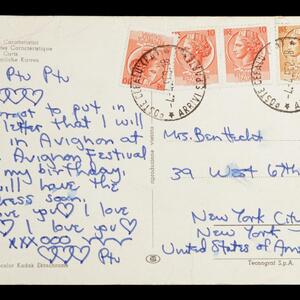 Caratteristici
tes Caractéristique
Carts
Ptu Ptu
forgot to put in
letter that I will
in Avignon at
Avignon Festival
my birthday.
will have the
ress soon.
love you I love
I love you
xxx000
Ptu
color Kodak Ektachrome
riproduzione
Mrs. Ben Hecht
39 West 67th
New York City
New York
United States of Am
Tecnograf S.p.A.
POSTE
ARRIVI